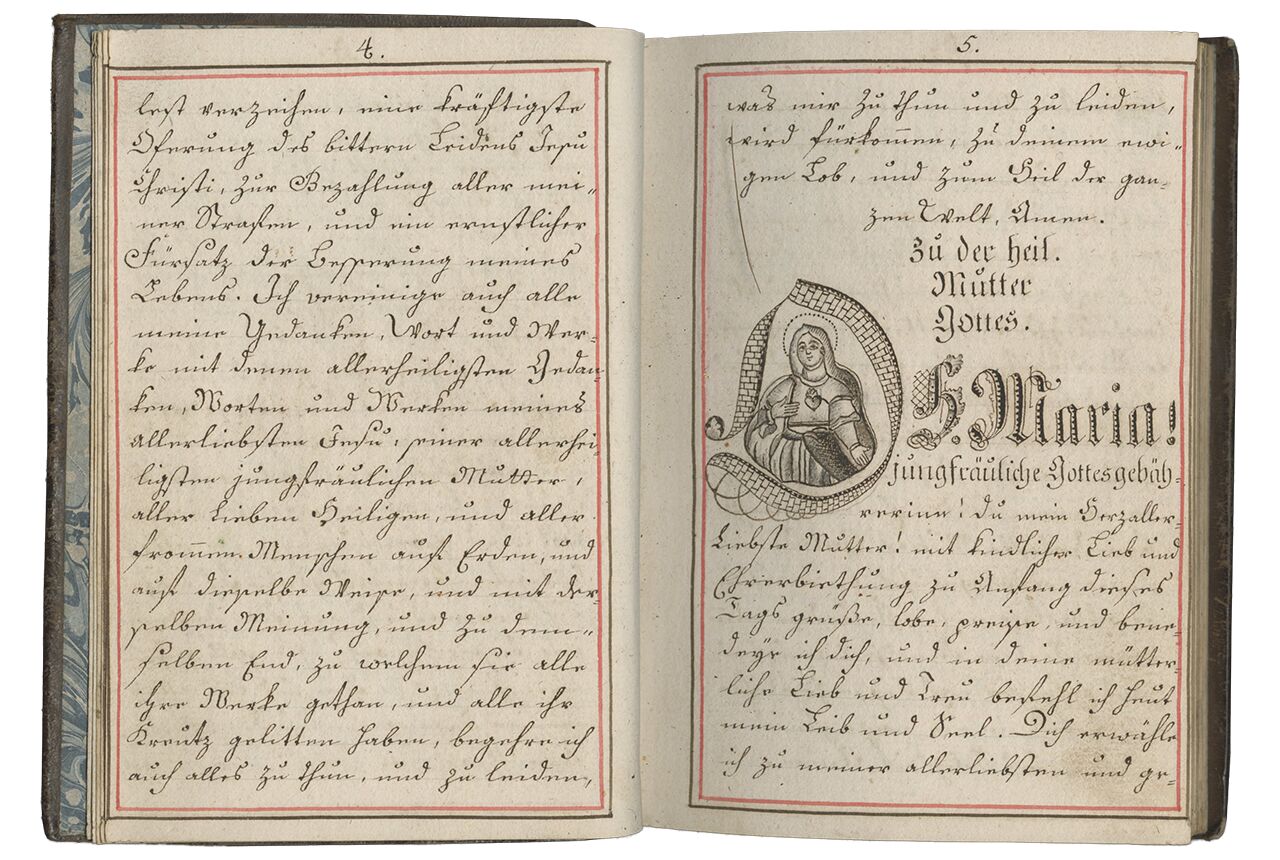 4.
lest verzeihen, eine kräftigste
Opferung des bittern Leidens Jesu
Christi, zur Bezahlung aller mei=
ner Straffen, und ein ernstlicher
Fürsatz der Besserung meines
Lebens. Ich vereinige auch alle
meine Gedanken, Wort und Wer=
ke mit denen allerheiligsten Gedan=
ken, Worten und Werken meines
allerliebsten Jesu, seiner allerhei=
ligsten jungfräulichen Mutter,
aller lieben Heiligen, und aller
frommen Menschen auf Erden, und
auf dieselbe Weise, und mit der=
selben Meinung, und zu dem=
selben End, zu welchem sie alle
ihre Werke gethan, und alle ihr
Kreutz gelitten haben, begehre ich
auch alles zu thun, und zu leiden,
5.
was mir zu thun und zu leiden,
wird fürkom̄en, zu deinem ewi=
gen Lob, und zum Heil der gan=
zen Welt, Amen.
Zu der heil.
Mutter
Gottes.
O
H. Maria!
jungfräuliche Gottesgebäh=
rerinn! du mein Herzaller=
liebste Mutter! mit kindlicher Lieb und
Ehrerbiethung zu Anfang dieses
Tags grüße, lobe, preise, und bene=
deye ich dich, und in deine mütter=
liche Lieb und Treu befehl ich heut
mein Leib und Seel. Dich erwähle
ich zu meiner allerliebsten und ge=